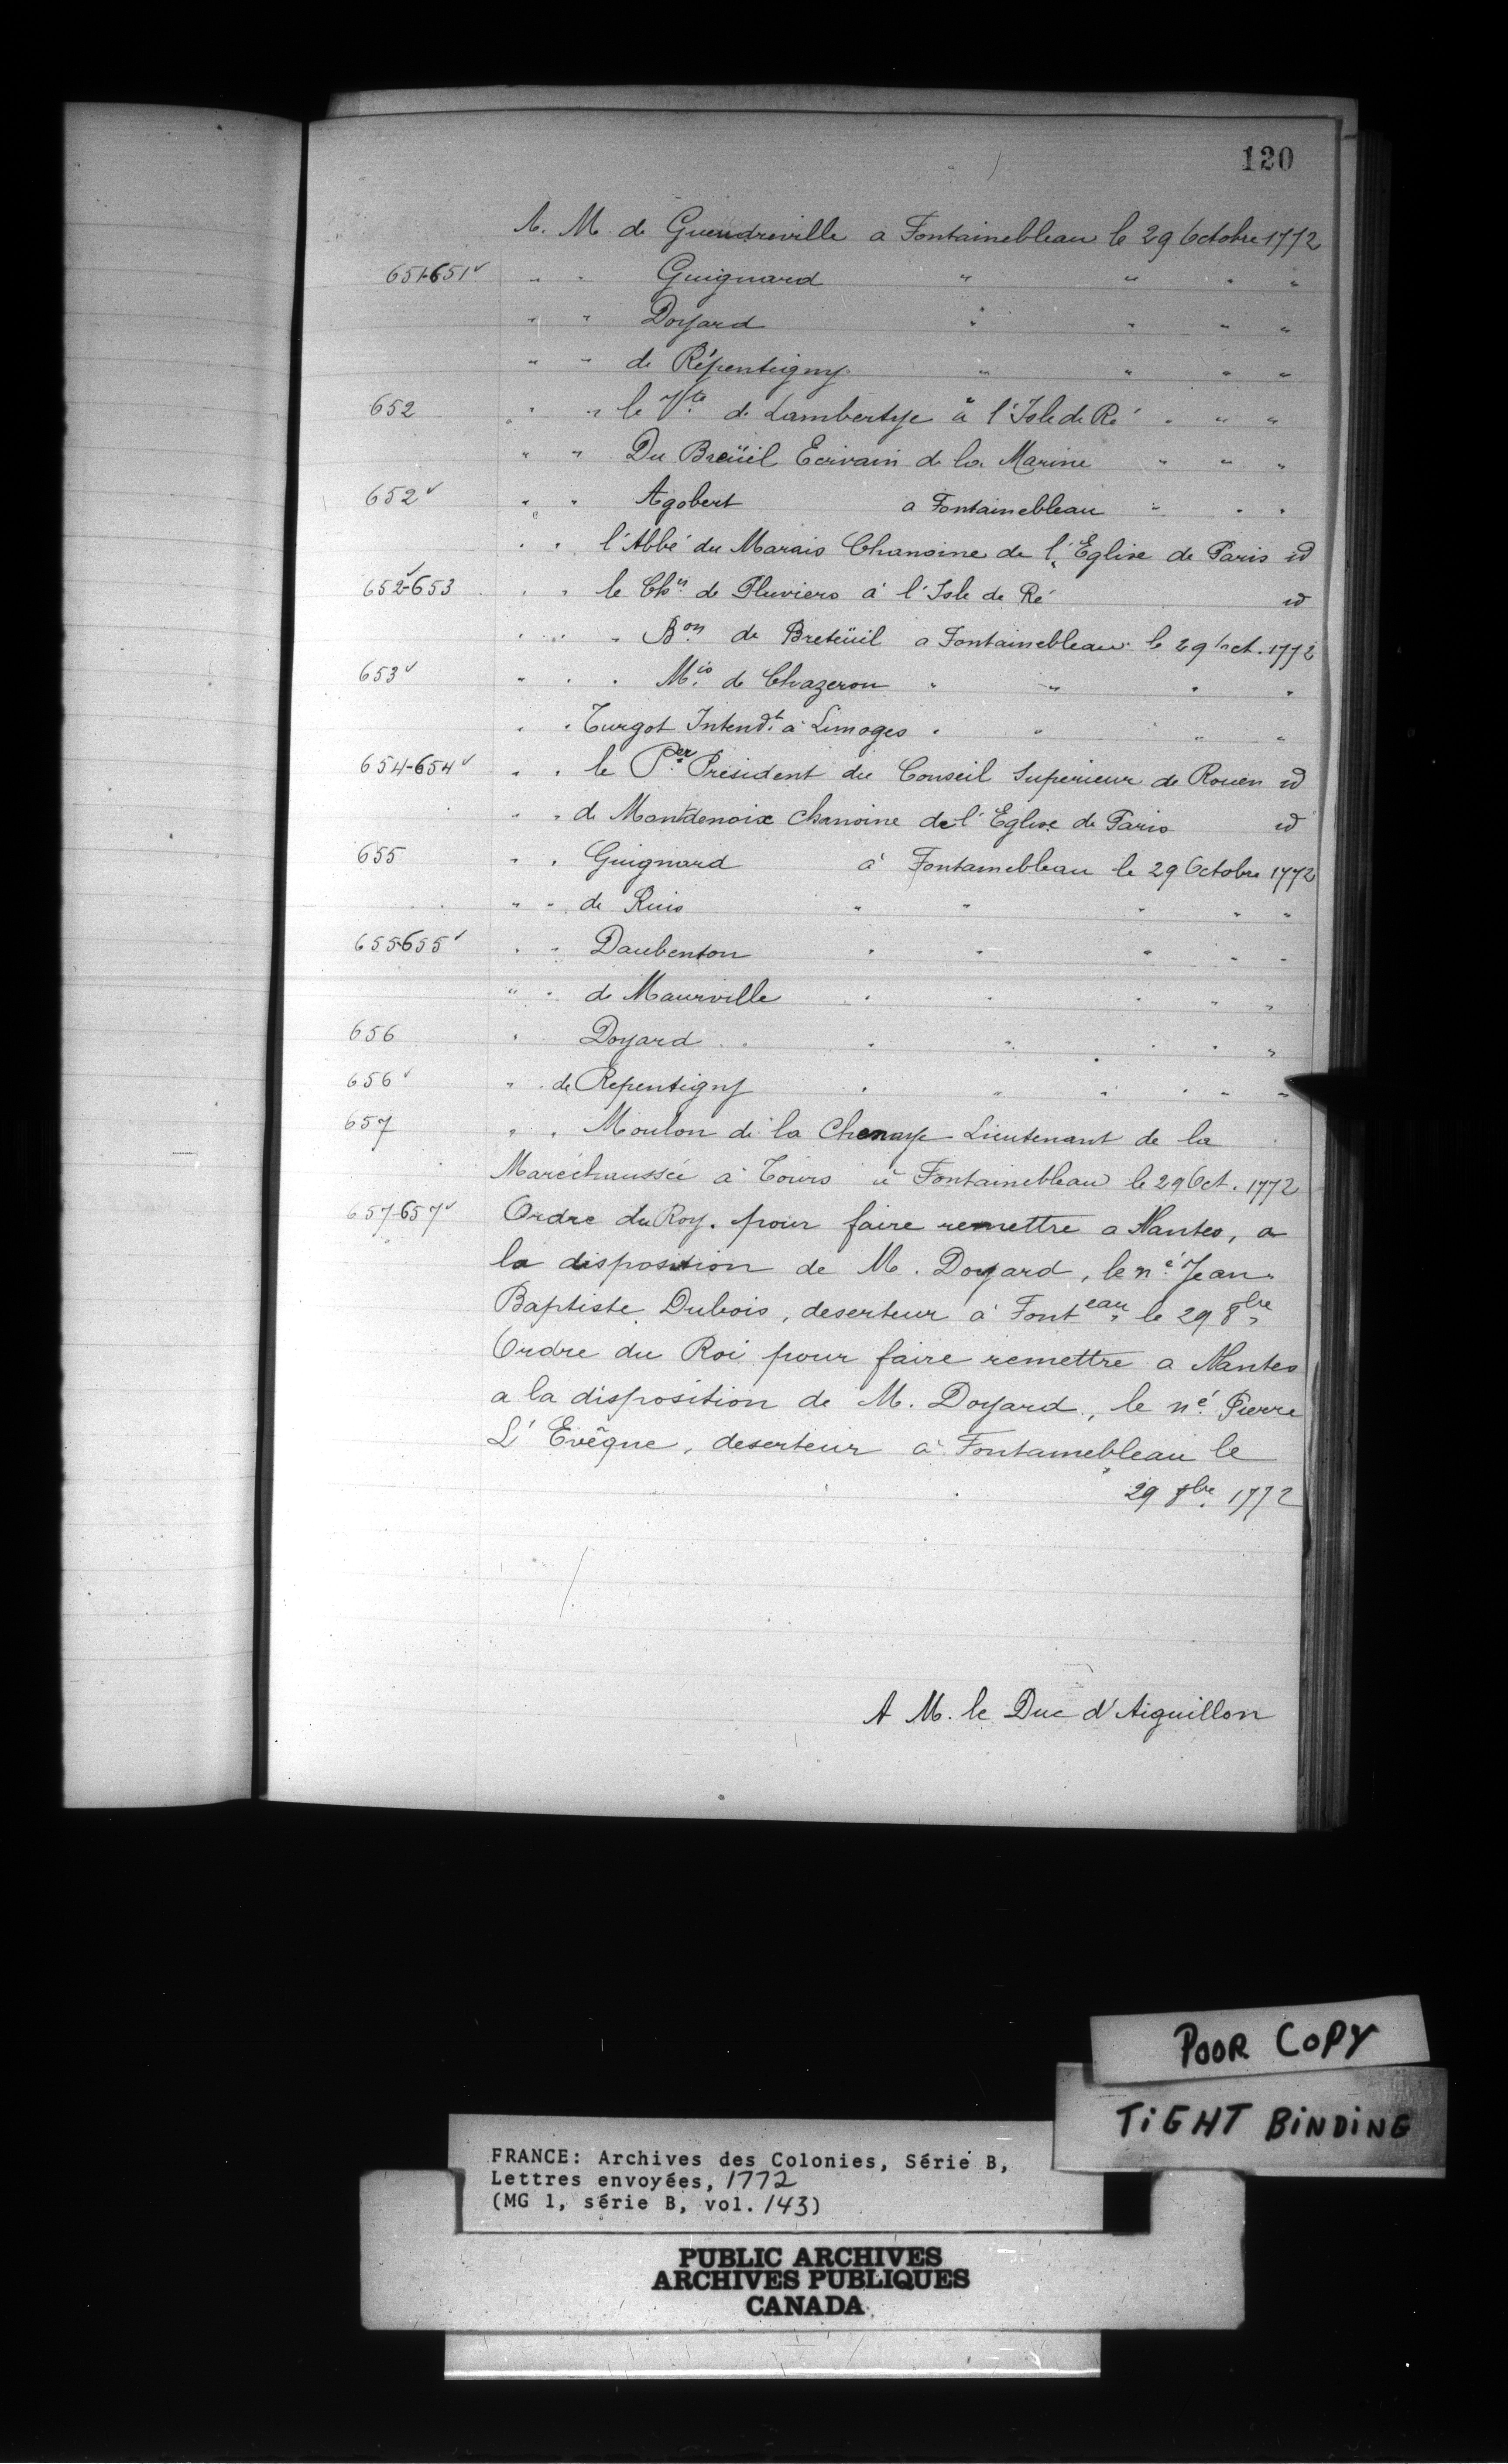 120
A. M. de Guendreville a Fontainebleau le 29 Octobre 1772
651-651v " " Guignard " " " "
" " Doyard " " " "
" " de Répentigny " " " "
652 " " le Vte de Lambertye à l'Isle de Ré " " "
" " Du Breüil Ecrivain de la Marine " " "
652v " " Agobert a Fontainebleau " " "
" " l'Abbé du Marais Chanoine de l'Eglise de Paris id
652v-653 " " le Cher de Pluviers à l'Isle de Ré id
" " " Bon de Breteüil a Fontainebleau le 29 Oct. 1772
653v " " " Mis de Chazeron " " " "
" " Turgot Intendt à Limoges " " " "
654-654v " " le Per Président du Conseil Superieur de Rouen id
" " de Montdenoix chanoine de l'Eglise de Paris id
655 " " Guignard à Fontainebleau le 29 Octobre 1772
" " de Ruis " " " " "
655-655v " " Daubenton " " " " "
" " de Maurville " " " " "
656 " Doyard " " " " "
656v " " de Repentigny " " " " "
657 " " Moulon de la Chenaye Lieutenant de la
Maréchaussée à Tours à Fontainebleau le 29 Oct. 1772
657-657v Ordre du Roy. pour faire remettre a Nantes, a
la disposition de M. Doyard, le né Jean
Baptiste Dubois, deserteur à Fonteau le 29 8bre
Ordre du Roi pour faire remettre a Nantes
a la disposition de M. Doyard, le né Pierre
L'Evêque, deserteur à Fontainebleau le
29 8bre 1772
A M. le Duc d'Aiguillon
POOR COPY
TIGHT BINDING
FRANCE: Archives des Colonies, Série B,
Lettres envoyées, 1772
(MG 1, série B, vol. 143)
PUBLIC ARCHIVES
ARCHIVES PUBLIQUES
CANADA